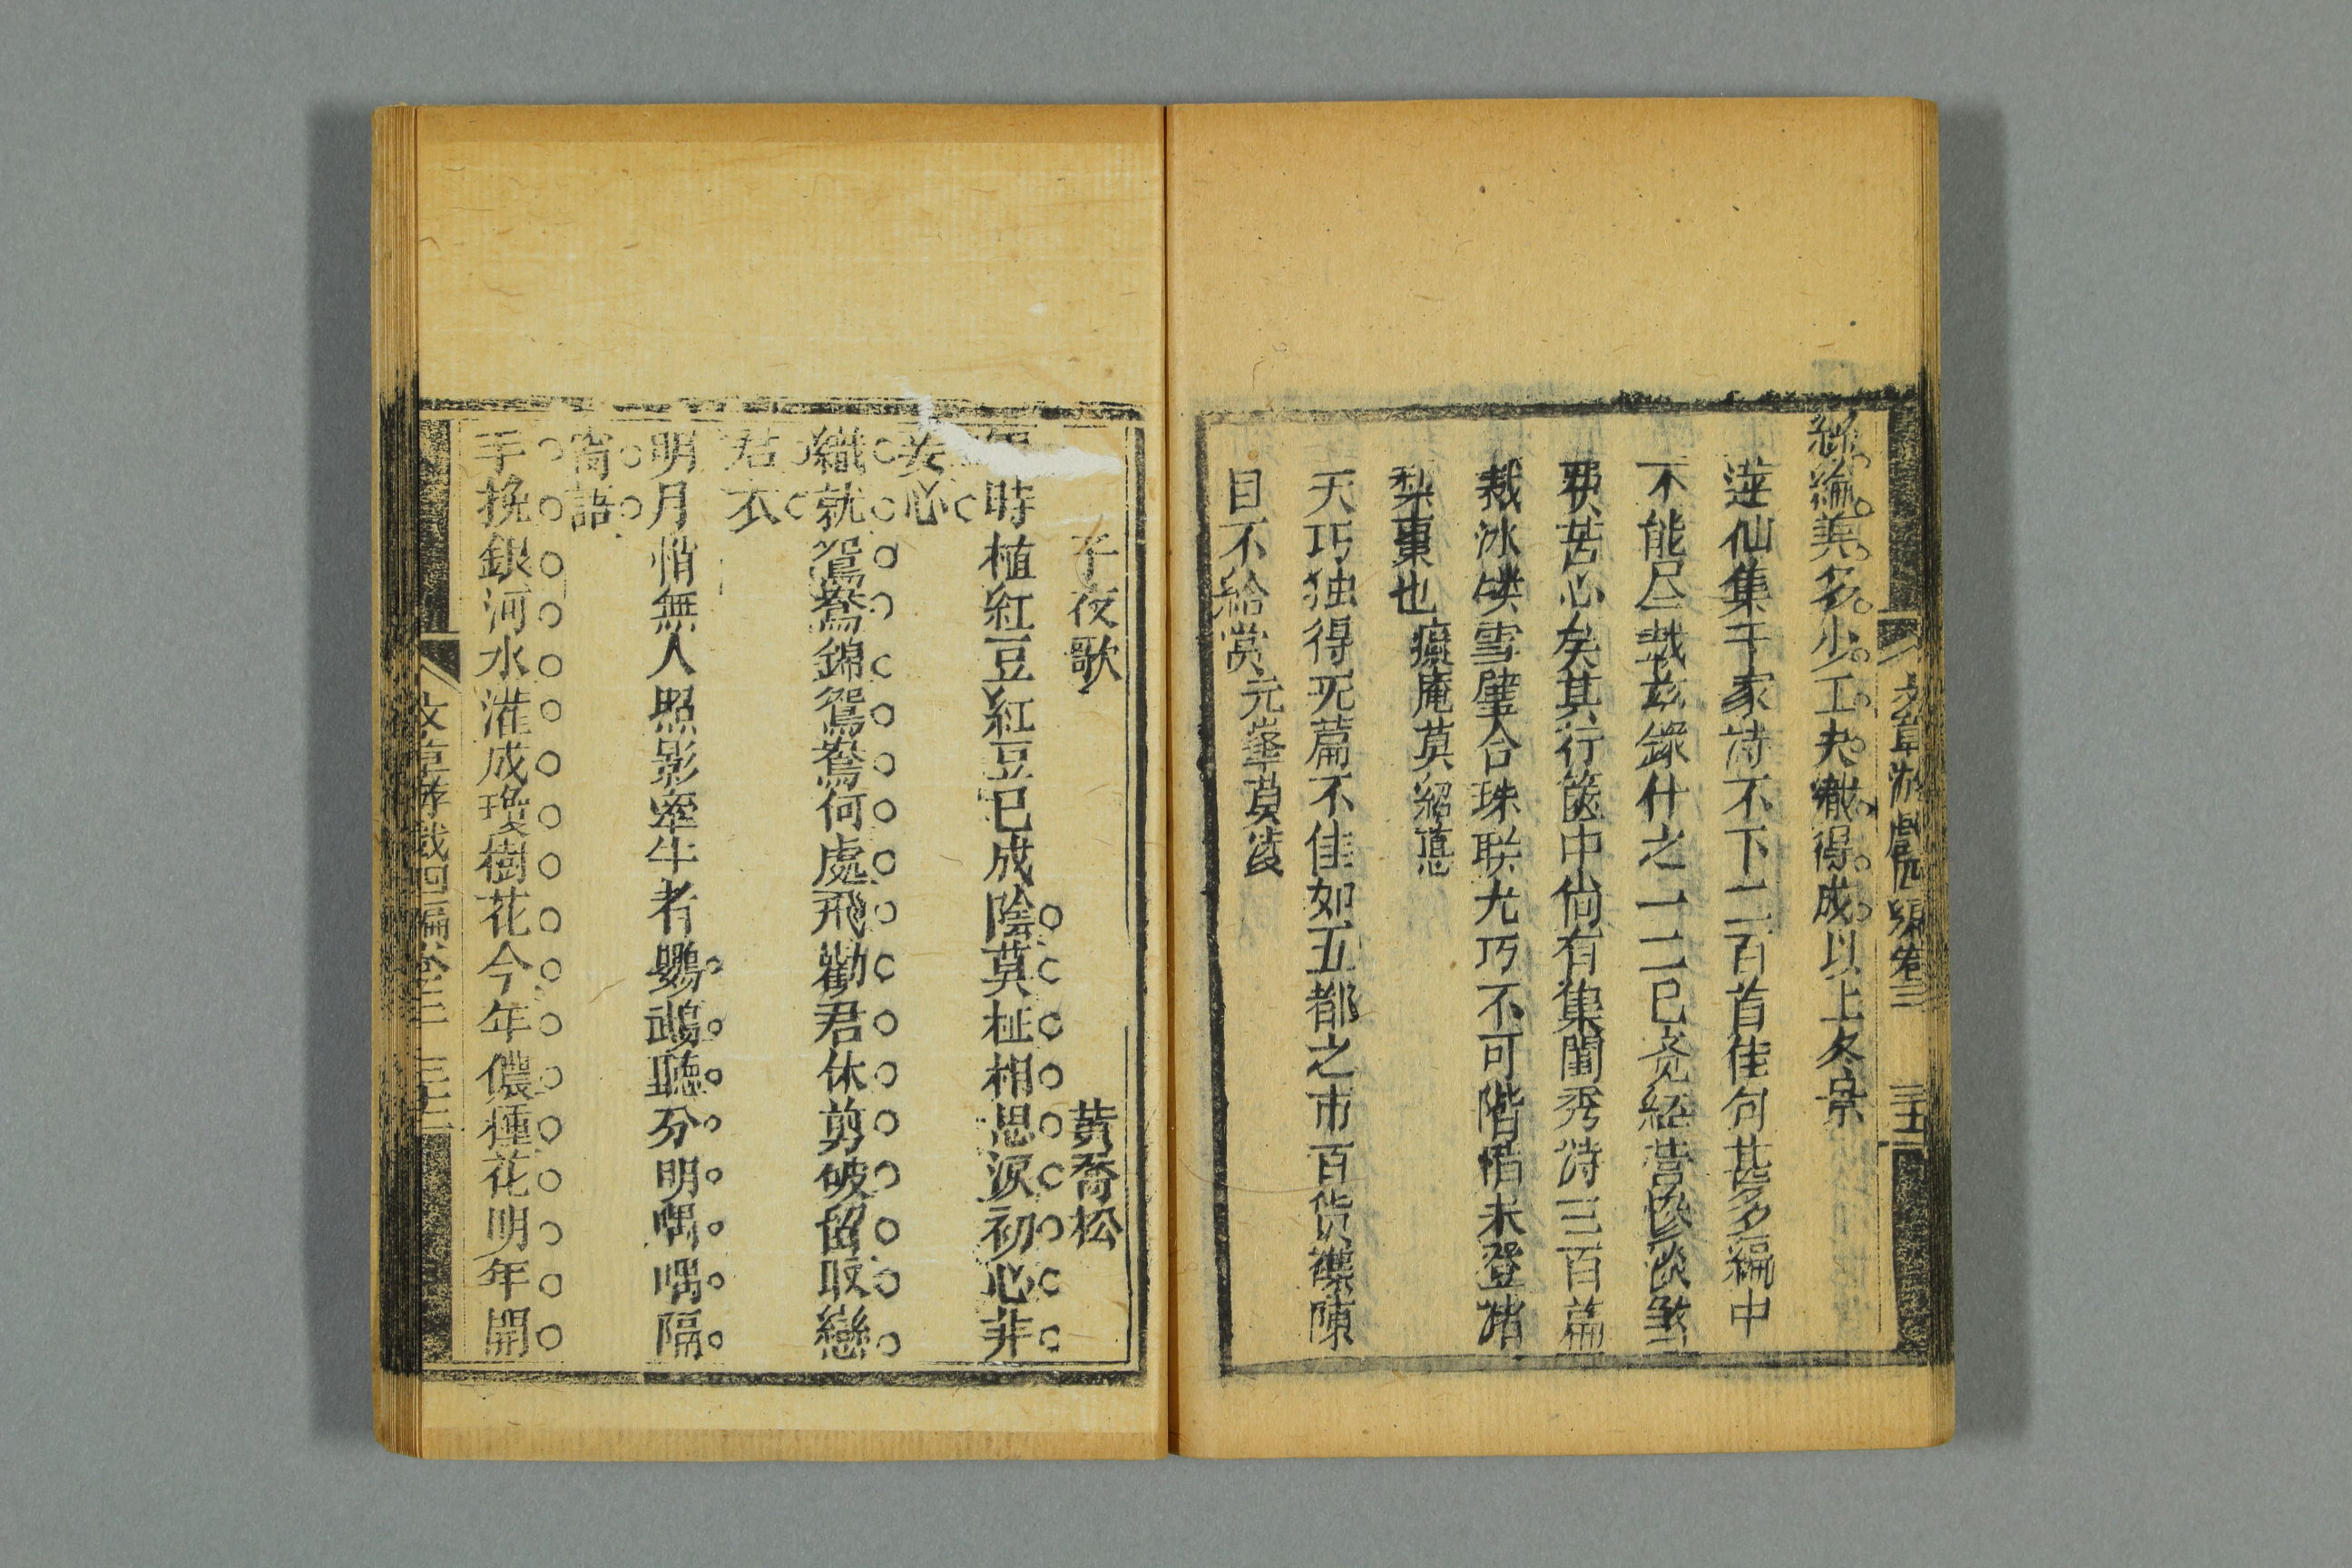 文章游戲四編卷三 三十五
綜綸美多少工夫織得成以上冬景
蓮仙集千家詩不下二百首佳句甚多編中
不能尽載玆錄什之一二已竟經營慘淡煞
費苦心矣其行篋中尙有集閨秀詩三百篇
裁冰鏤雪璧合珠联尤巧不可階惜未登諸
梨棗也癡庵莫紹悳
天巧独得无篇不佳如五都之市百货襍陳
目不給赏元峯莫凌
子夜歌 黃喬松
時植紅豆紅豆已成陰莫枉相思淚初心非
妾心
織就鴛鴦錦鴛鴦何處飛勸君休剪破留取戀
君衣
明月悄無人照影牽牛者鸚鵡聽分明喁喁隔
窗語
手挽銀河水灌成瓊樹花今年儂種花明年開
文章游戲四編卷三 三十六